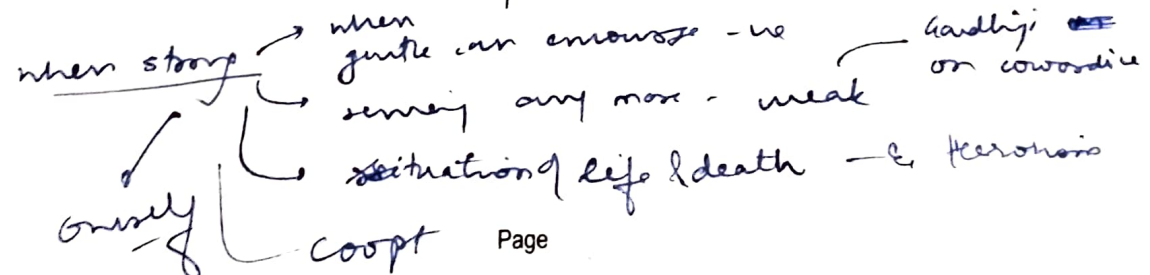 when
when strong gentle can encourage -ve Gandhiji
on cowardice
seming any more - weak
situation of life & death -
Onesely
coopt Page